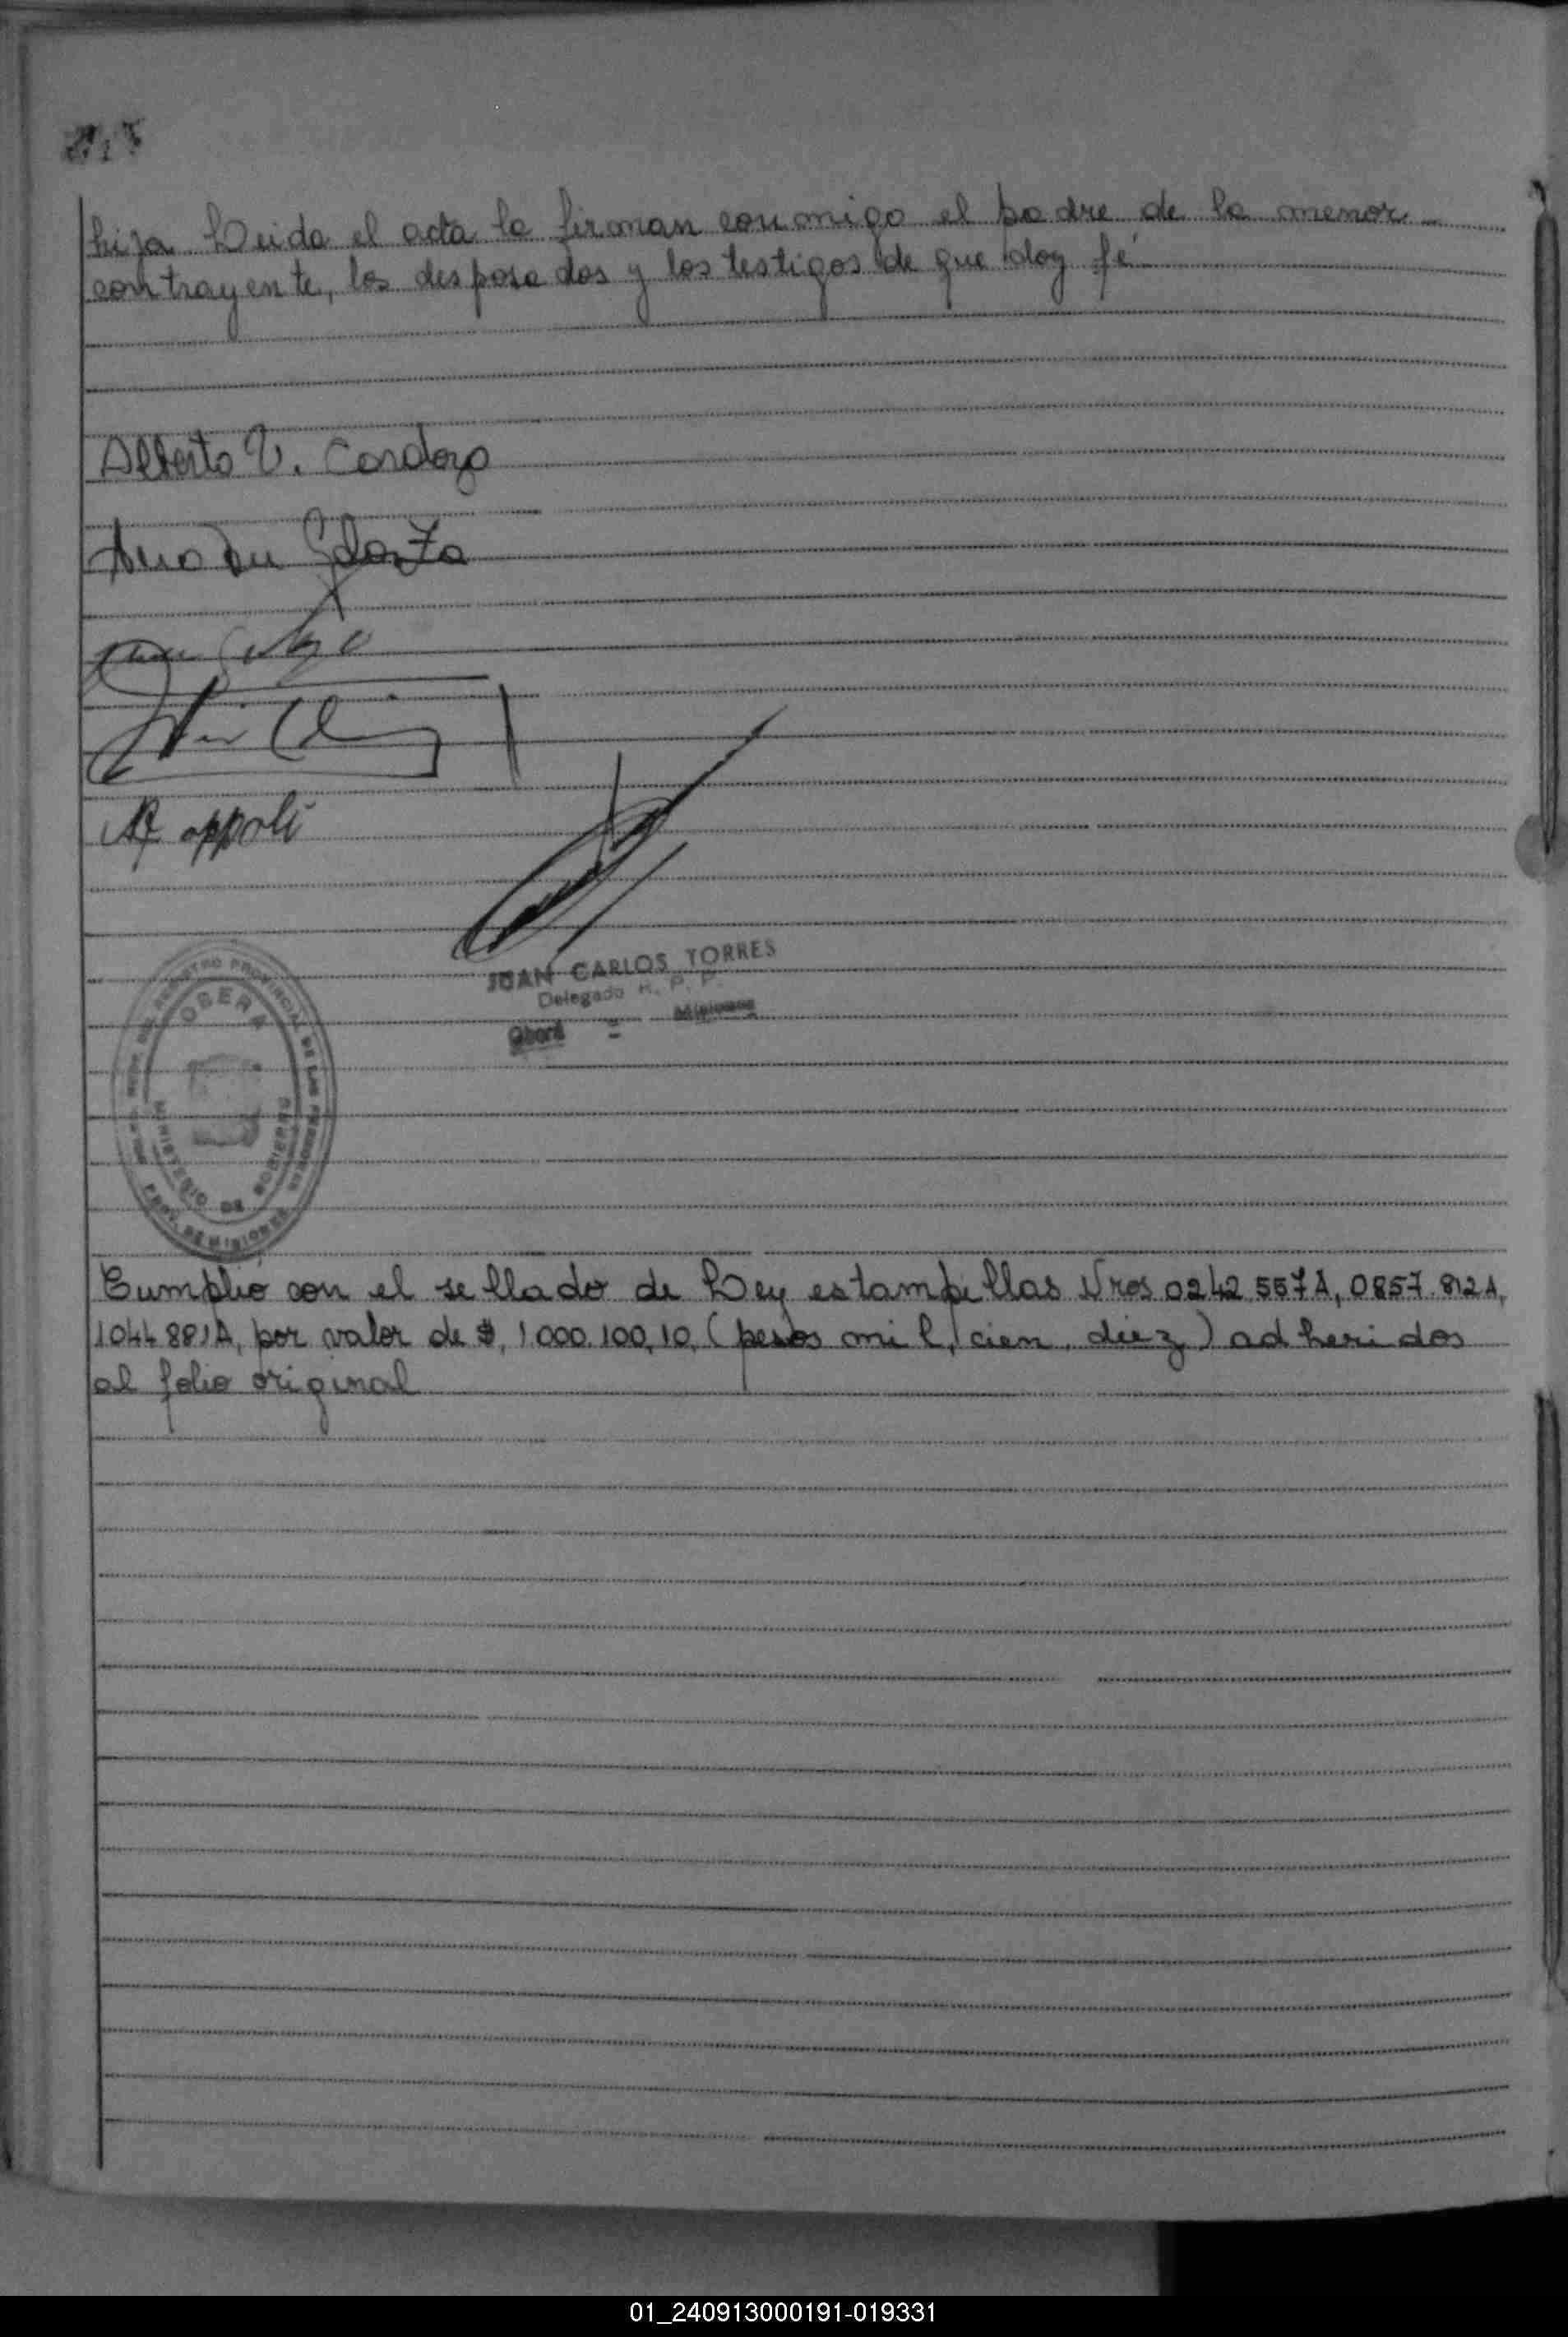 hija Leida el acta la firman conmigo el padre de la menor
contrayente, los desposados y los testigos de que doy fé
Alberto V. Cardozo
JUAN CARLOS TORRES
Delegado R. P. P.
Oberá - Misiones
REGISTRO PROVINCIAL DE LAS PERSONAS
OBERA
MINISTERIO DE GOBIERNO
PROV. DE MISIONES
Cumplió con el sellado de Ley estampillas Nros 0242 557A, 0857.812A,
1044 881A, por valor de $, 1.000.100,10, (pesos mil, cien, diez) adheridos
al folio original
01_240913000191-019331